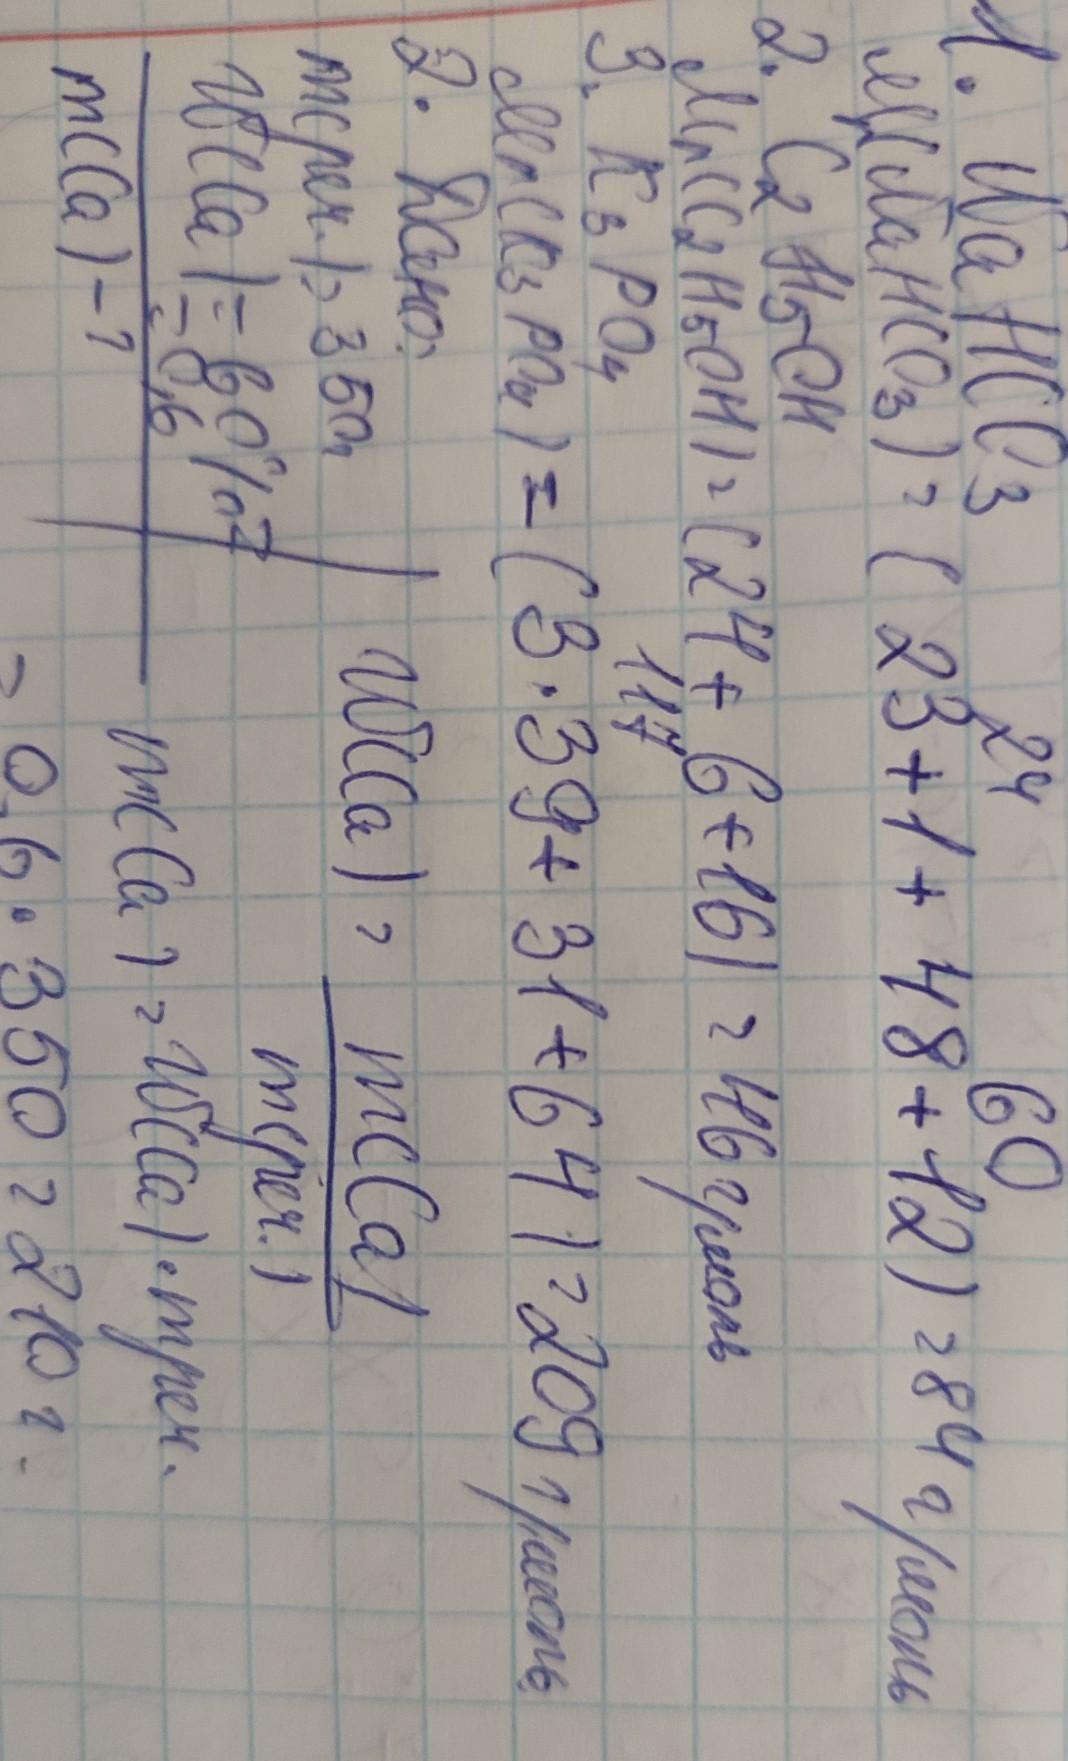 1. NaHCO3
24 60
Mr(NaHCO3) = (23+1+48+12) = 84 г/моль
2. C2H5OH
Mr(C2H5OH) = (24+6+16) = 46 г/моль
3. K3PO4
117
Mr(K3PO4) = (3·39+31+64) = 209 г/моль
2. Дано:
m(реч.) = 350г
W(Ca) = 60%
= 0,6
m(Ca) - ?
W(Ca) = m(Ca)
m(реч.)
m(Ca) = W(Ca)·mреч.
= 0,6·350 = 210 г.